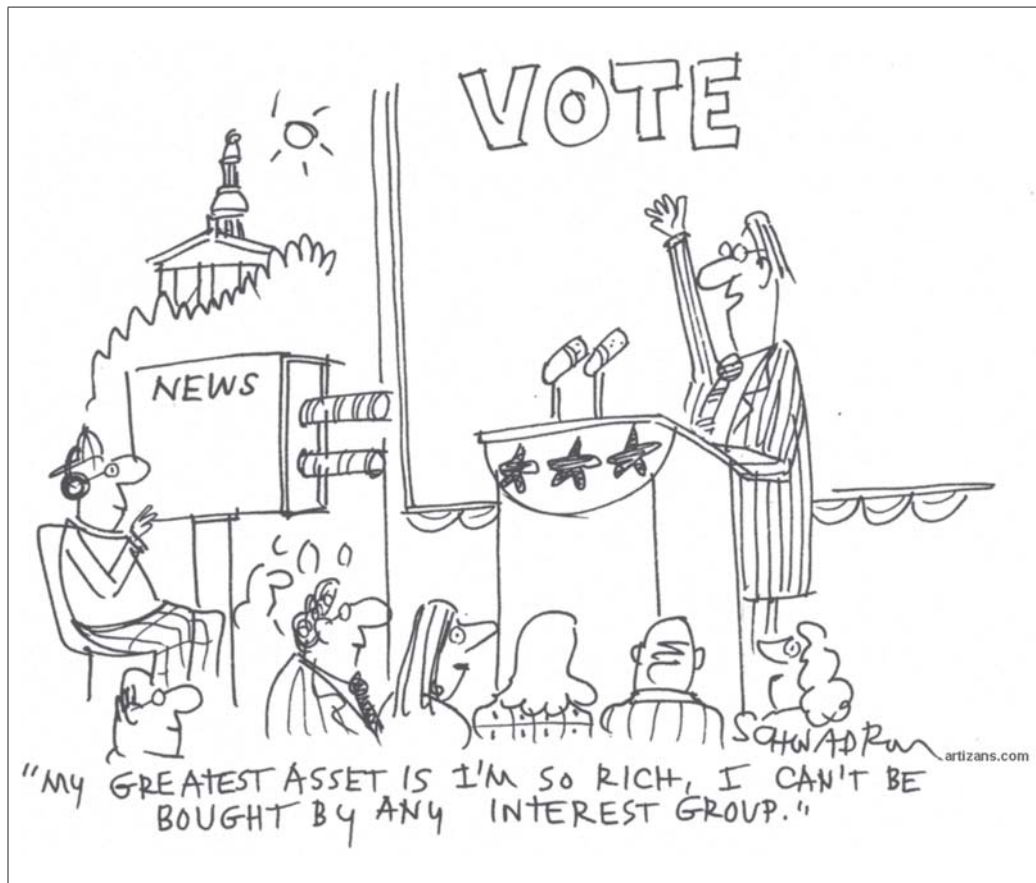 VOTE
NEWS
SCHWADRON
artizans.com
"MY GREATEST ASSET IS I'M SO RICH, I CAN'T BE
BOUGHT BY ANY INTEREST GROUP."